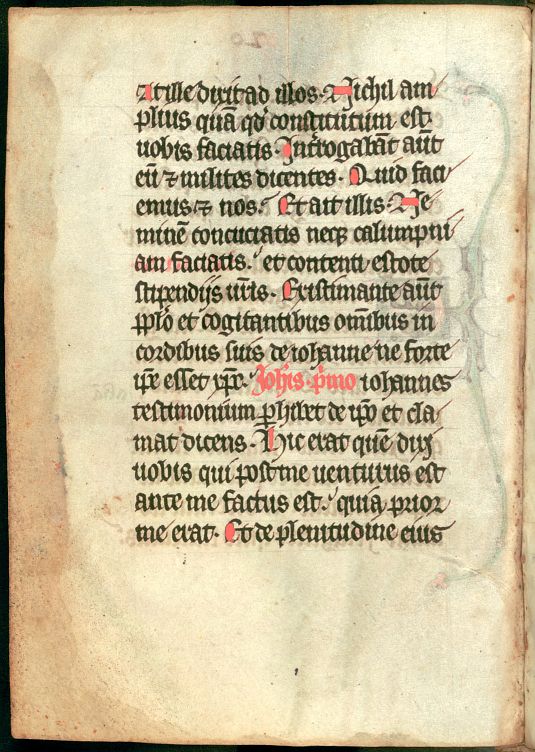 At ille dixit ad illos. Nichil am
plius quā qđ constitutum est
uobis faciatis. Intr̄ogabāt aūt
eū ⁊ milites dicentes. Quid faci
emus ⁊ nos. Et ait illis. Ne
minē concuciatis neqꝫ calumpni
am faciatis. et contenti estote
stipendijs ur̄is. Existimante aūt
pplo et cogitantibus om̄ibus in
cordibus suis de iohanne ne forte
ip̄e esset xp̄c. Joh̄is p̄mo iohannes
testimonium ꝑhibet de ip̄o et cla
mat dicens. Hic erat quē dixi
uobis qui post me uenturus est
ante me factus est. quia prior
me erat. Et de plenitudine eius